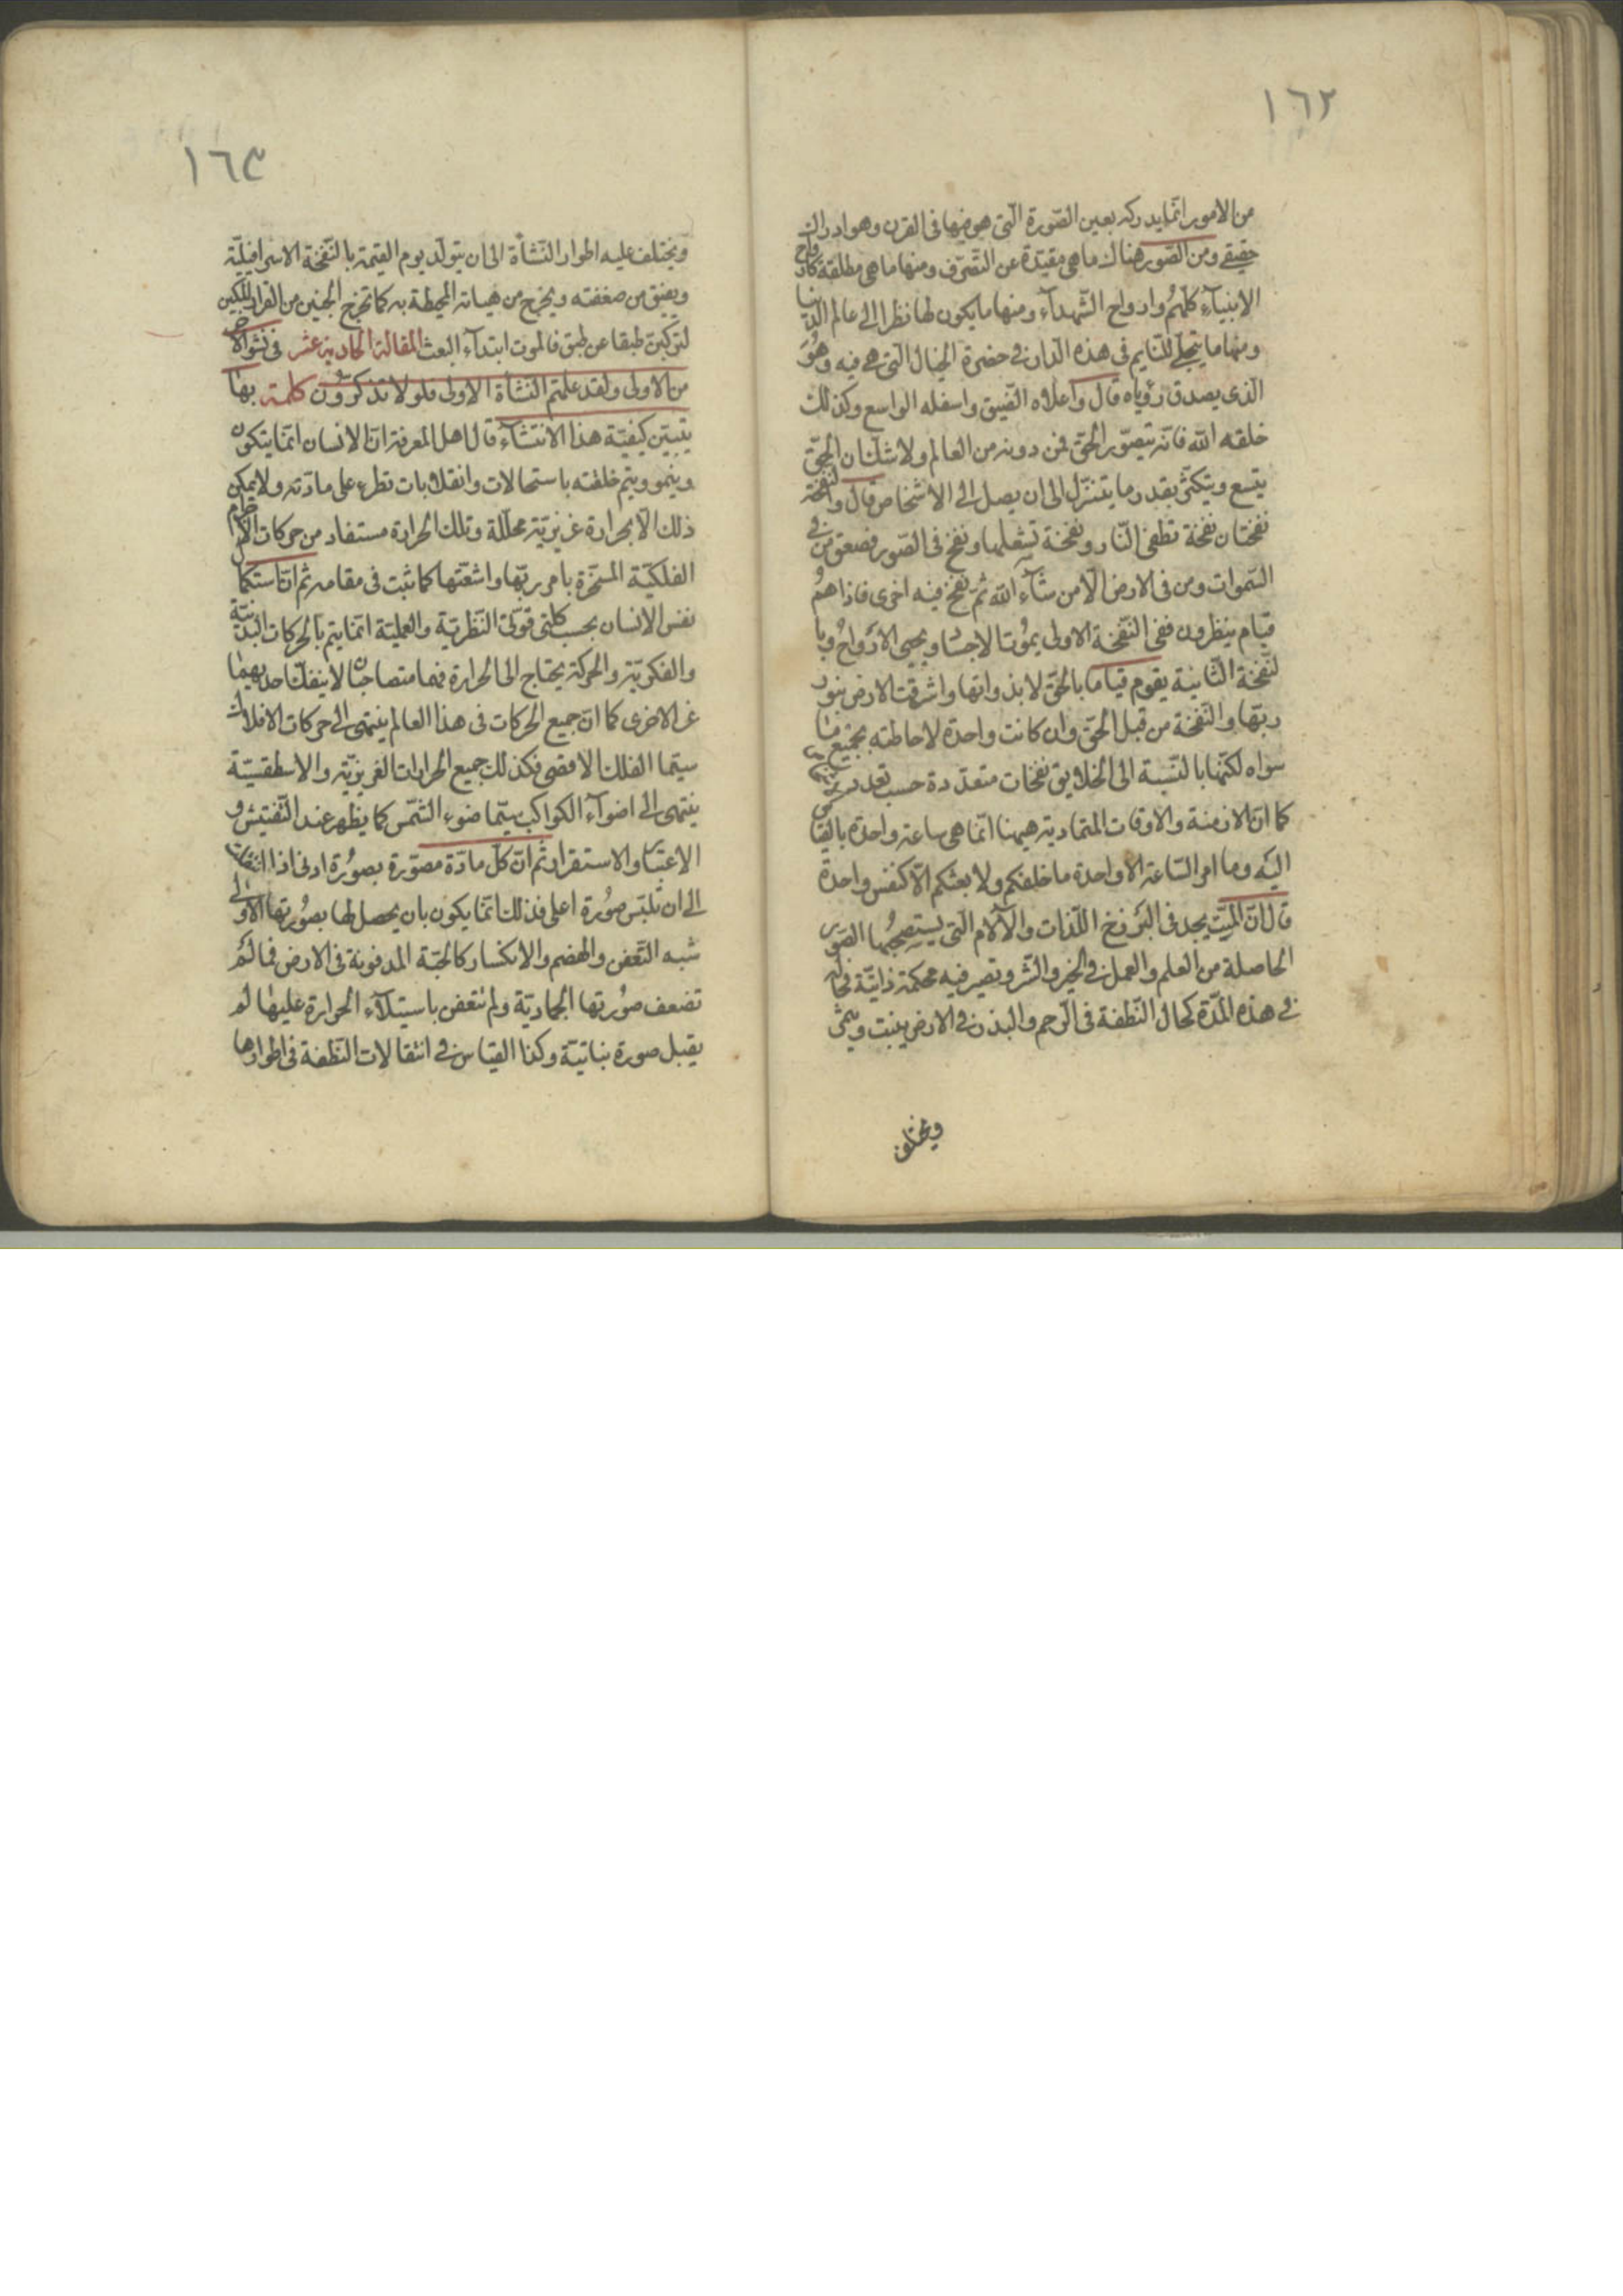 ١٦٢
من الامور انّما يدركه بعين الصّورة الّتى هو فيها فى القرن وهو ادراك
حقيقى ومن الصّور هناك ما هى مقيّدة عن التّصرّف ومنها ما هى مطلقة كارواح
الانبيآء كلّهم وارواح الشّهدآء ومنها ما يكون لها نظر الى عالم الدّنيا
ومنها ما يتجلّى للنّايم فى هذه الدار فى حضرة الخيال الّتى هى فيه وهو
الّذى يصدق رؤياه قال واعلاه الضّيق واسفله الواسع وكذلك
خلقه اللّه فانّه يتصوّر الحقّ فمن دونه من العالم ولا شكّ ان الحقّ
يتسع ويتكثّر بقدر ما يتنزّل الى ان يصل الى الاشخاص قال والنفخة
نفختان نفخة تطفئ النّار ونفخة تشعلها ونفخ فى الصّور فصعق من فى
السّموات ومن فى الارض الّا من شآء اللّه ثمّ نفخ فيه اخرى فاذا هم
قيام ينظرون ففى النّفخة الاولى يموت الاجساد ويحيى الارواح وبا
لنّفخة الثّانية يقوم قياما بالحقّ لا بذواتها واشرقت الارض بنور
ربّها والنّفخة من قبل الحقّ وان كانت واحدة لاحاطته بجميع ما
سواه لكنّها بالنّسبة الى الخلايق نفخات متعدّدة حسب تعدد
كما انّ الازمنة والاوقات المتمادية هيهنا انّما هى ساعة واحدة بالقياس
اليه وما امر السّاعة الا واحدة ما خلقكم ولا بعثكم الّا كنفس واحدة
قال انّ الميّت يجد فى البرزخ اللّذات والآلام الّتى يستصحبها الصّور
الحاصلة من العلم والعمل فى الخير والشّر وتصير فيه محكمة ذاتيّة فحاله
فى هذه المدّة كحال النّطفة فى الرّحم والبذر فى الارض ينبت ويثمر
ويختلف
١٦٣
ويختلف عليه اطوار النّشأة الى ان يتولّد يوم القيمة بالنّفخة الاسرافيليّة
ويفيق من صعقته ويخرج من هئاته المحيطة به كما تخرج الجنين من القرار المكين
لتركبنّ طبقا عن طبق فالموت ابتدآء البعث المقالة الحادية عشر فى نشو الآخرة
من الاولى ولقد علمتم النّشأة الاولى فلولا تذكرون كلمة بها
يتبيّن كيفيّة هذا الانتشآء قال اهل المعرفة انّ الانسان انّما يتكوّن
وينمو ويتم خلقته باستحالات وانقلابات تطرء على مادّته ولا يمكن
ذلك الّا بحرارة غريزيّة محلّلة وتلك الحرارة مستفاد من حركات الاجرام
الفلكيّة المسخّرة بامر ربّها واشعّتها كما ثبت فى مقامه ثمّ انّ استكمال
نفس الانسان بحسب كلتى قوّتى النّظريّة والعمليّة انّما يتم بالحركات البدنيّة
والفكريّة والحركة يحتاج الى الحرارة فهما متصاحبان لا ينفكّ احديهما
عن الاخرى كما انّ جميع الحركات فى هذا العالم ينتهى الى حركات الافلاك
سيّما الفلك الاقصى فكذلك جميع الحرارات الغريزيّة والاسطقسيّة
ينتهى الى اضوآء الكواكب سيّما ضوء الشّمس كما يظهر عند التّفتيش و
الاعتبار والاستقرار ثمّ انّ كلّ مادّة مصوّرة بصورة ادنى اذا انتقلت
الى ان تلبّس صورة اعلى فذلك انّما يكون بان يحصل لها بصورتها الاولى
شبه التّعفن والهضم والانكسار كالحبّة المدفونة فى الارض فما لم
تضعف صورتها الجماديّة ولم تتعفن باستيلآء الحرارة عليها لم
يقبل صورة نباتيّة وكذا القياس فى انتقالات النّطفة فى اطوارها